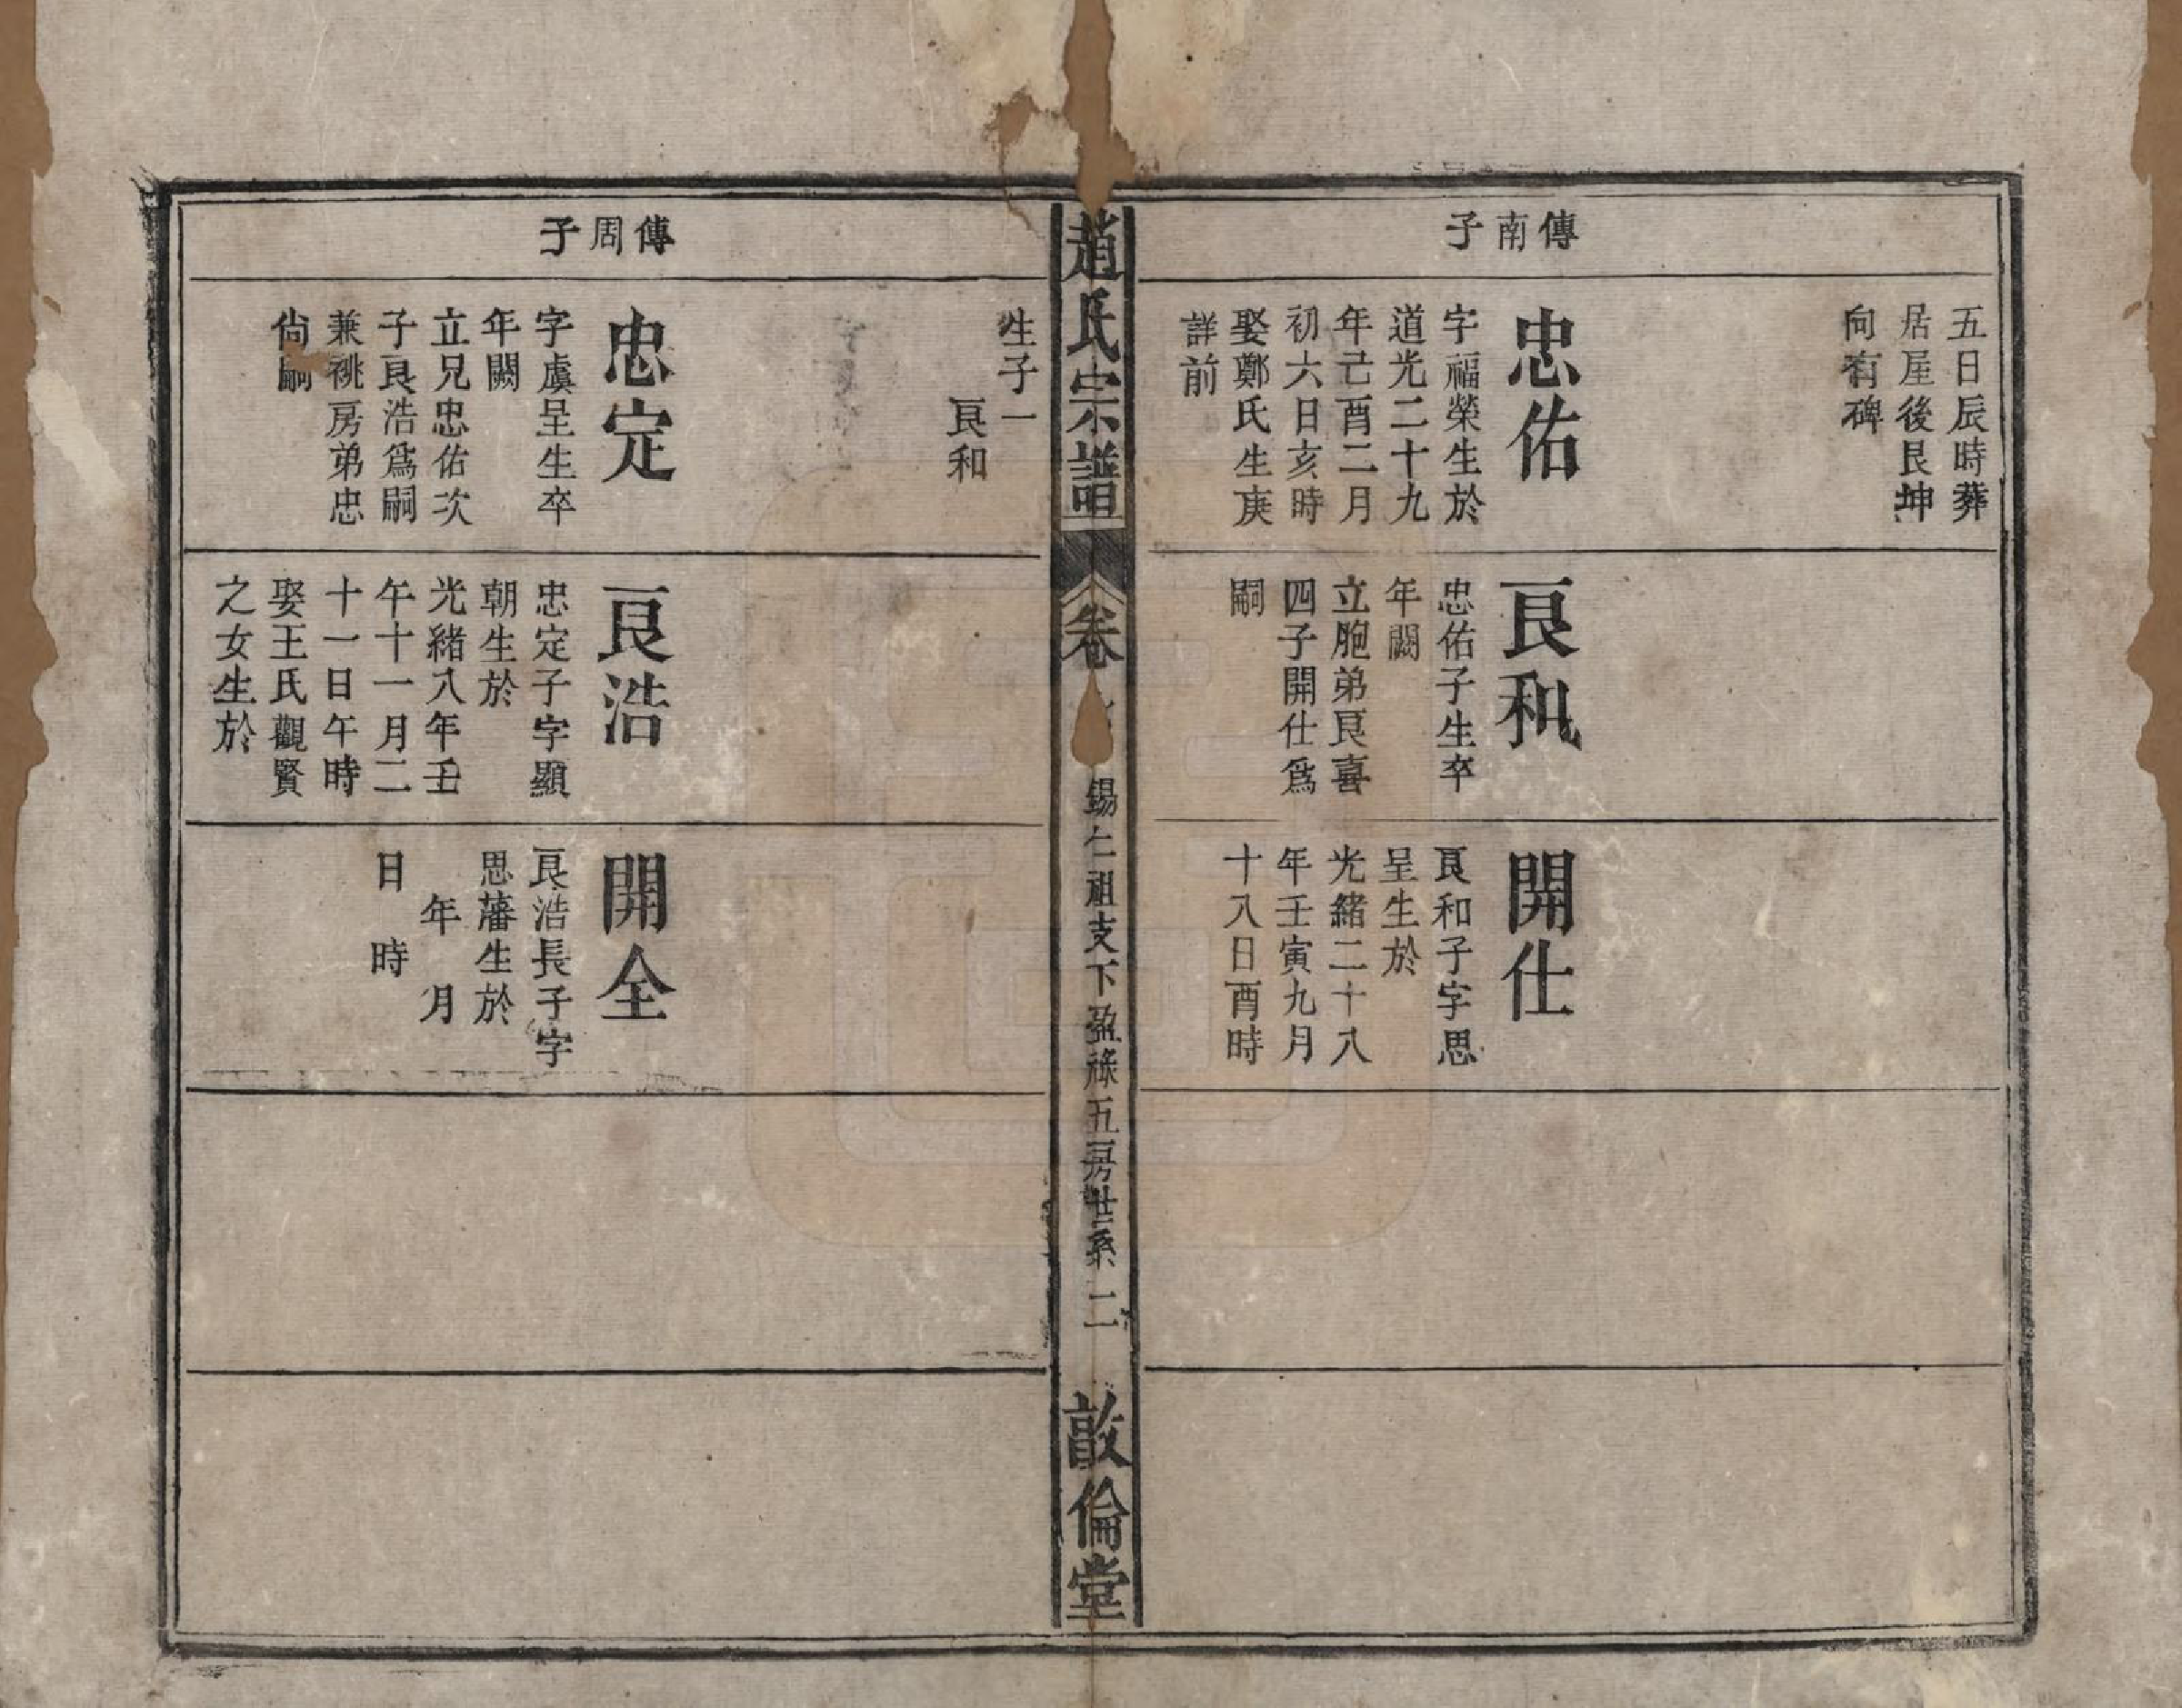 傳南子
五日辰時葬
居屋後艮坤
向有碑
忠佑
字福榮生於
道光二十九
年己酉二月
初六日亥時
娶鄭氏生庚
詳前
良和
忠佑子生卒
年闕
立胞弟良喜
四子開仕爲
嗣
開仕
良和子字思
呈生於
光緒二十八
年壬寅九月
十八日酉時
趙氏宗譜
卷
錫仁祖支下盈祿五房世系
二
敦倫堂
傳周子
生子一
良和
忠定
字虞呈生卒
年闕
立兄忠佑次
子良浩爲嗣
兼祧房弟忠
尙嗣
良浩
忠定子字顯
朝生於
光緒八年壬
午十一月二
十一日午時
娶王氏觀賢
之女生於
開全
良浩長子字
思藩生於
年 月
日 時